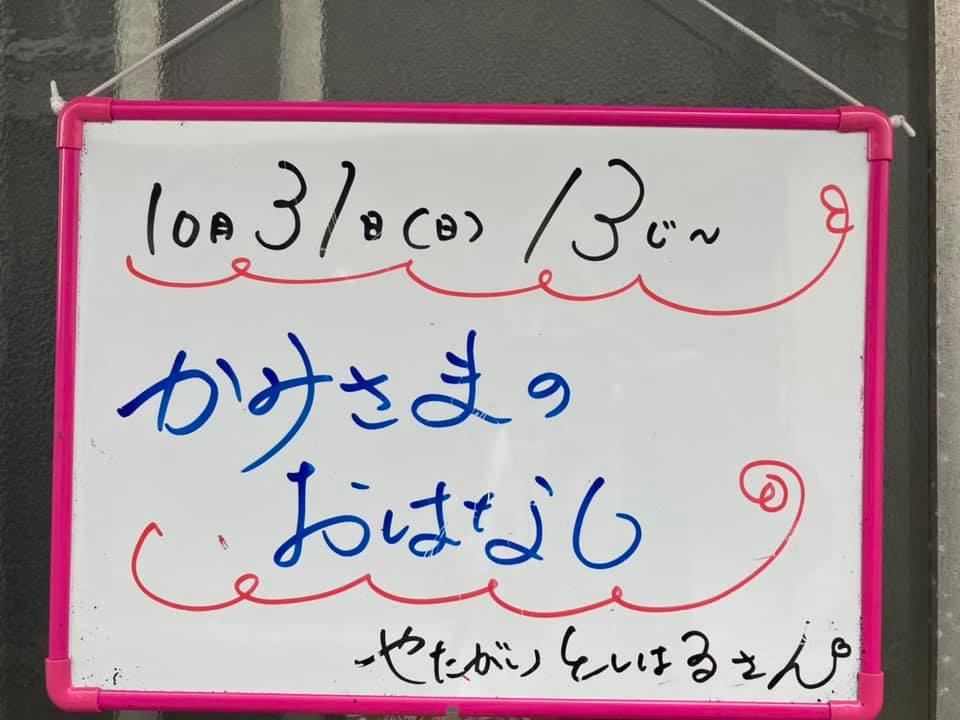 10月31日(日) 13じ〜
かみさまの
おはなし
やたがい としはるさん。